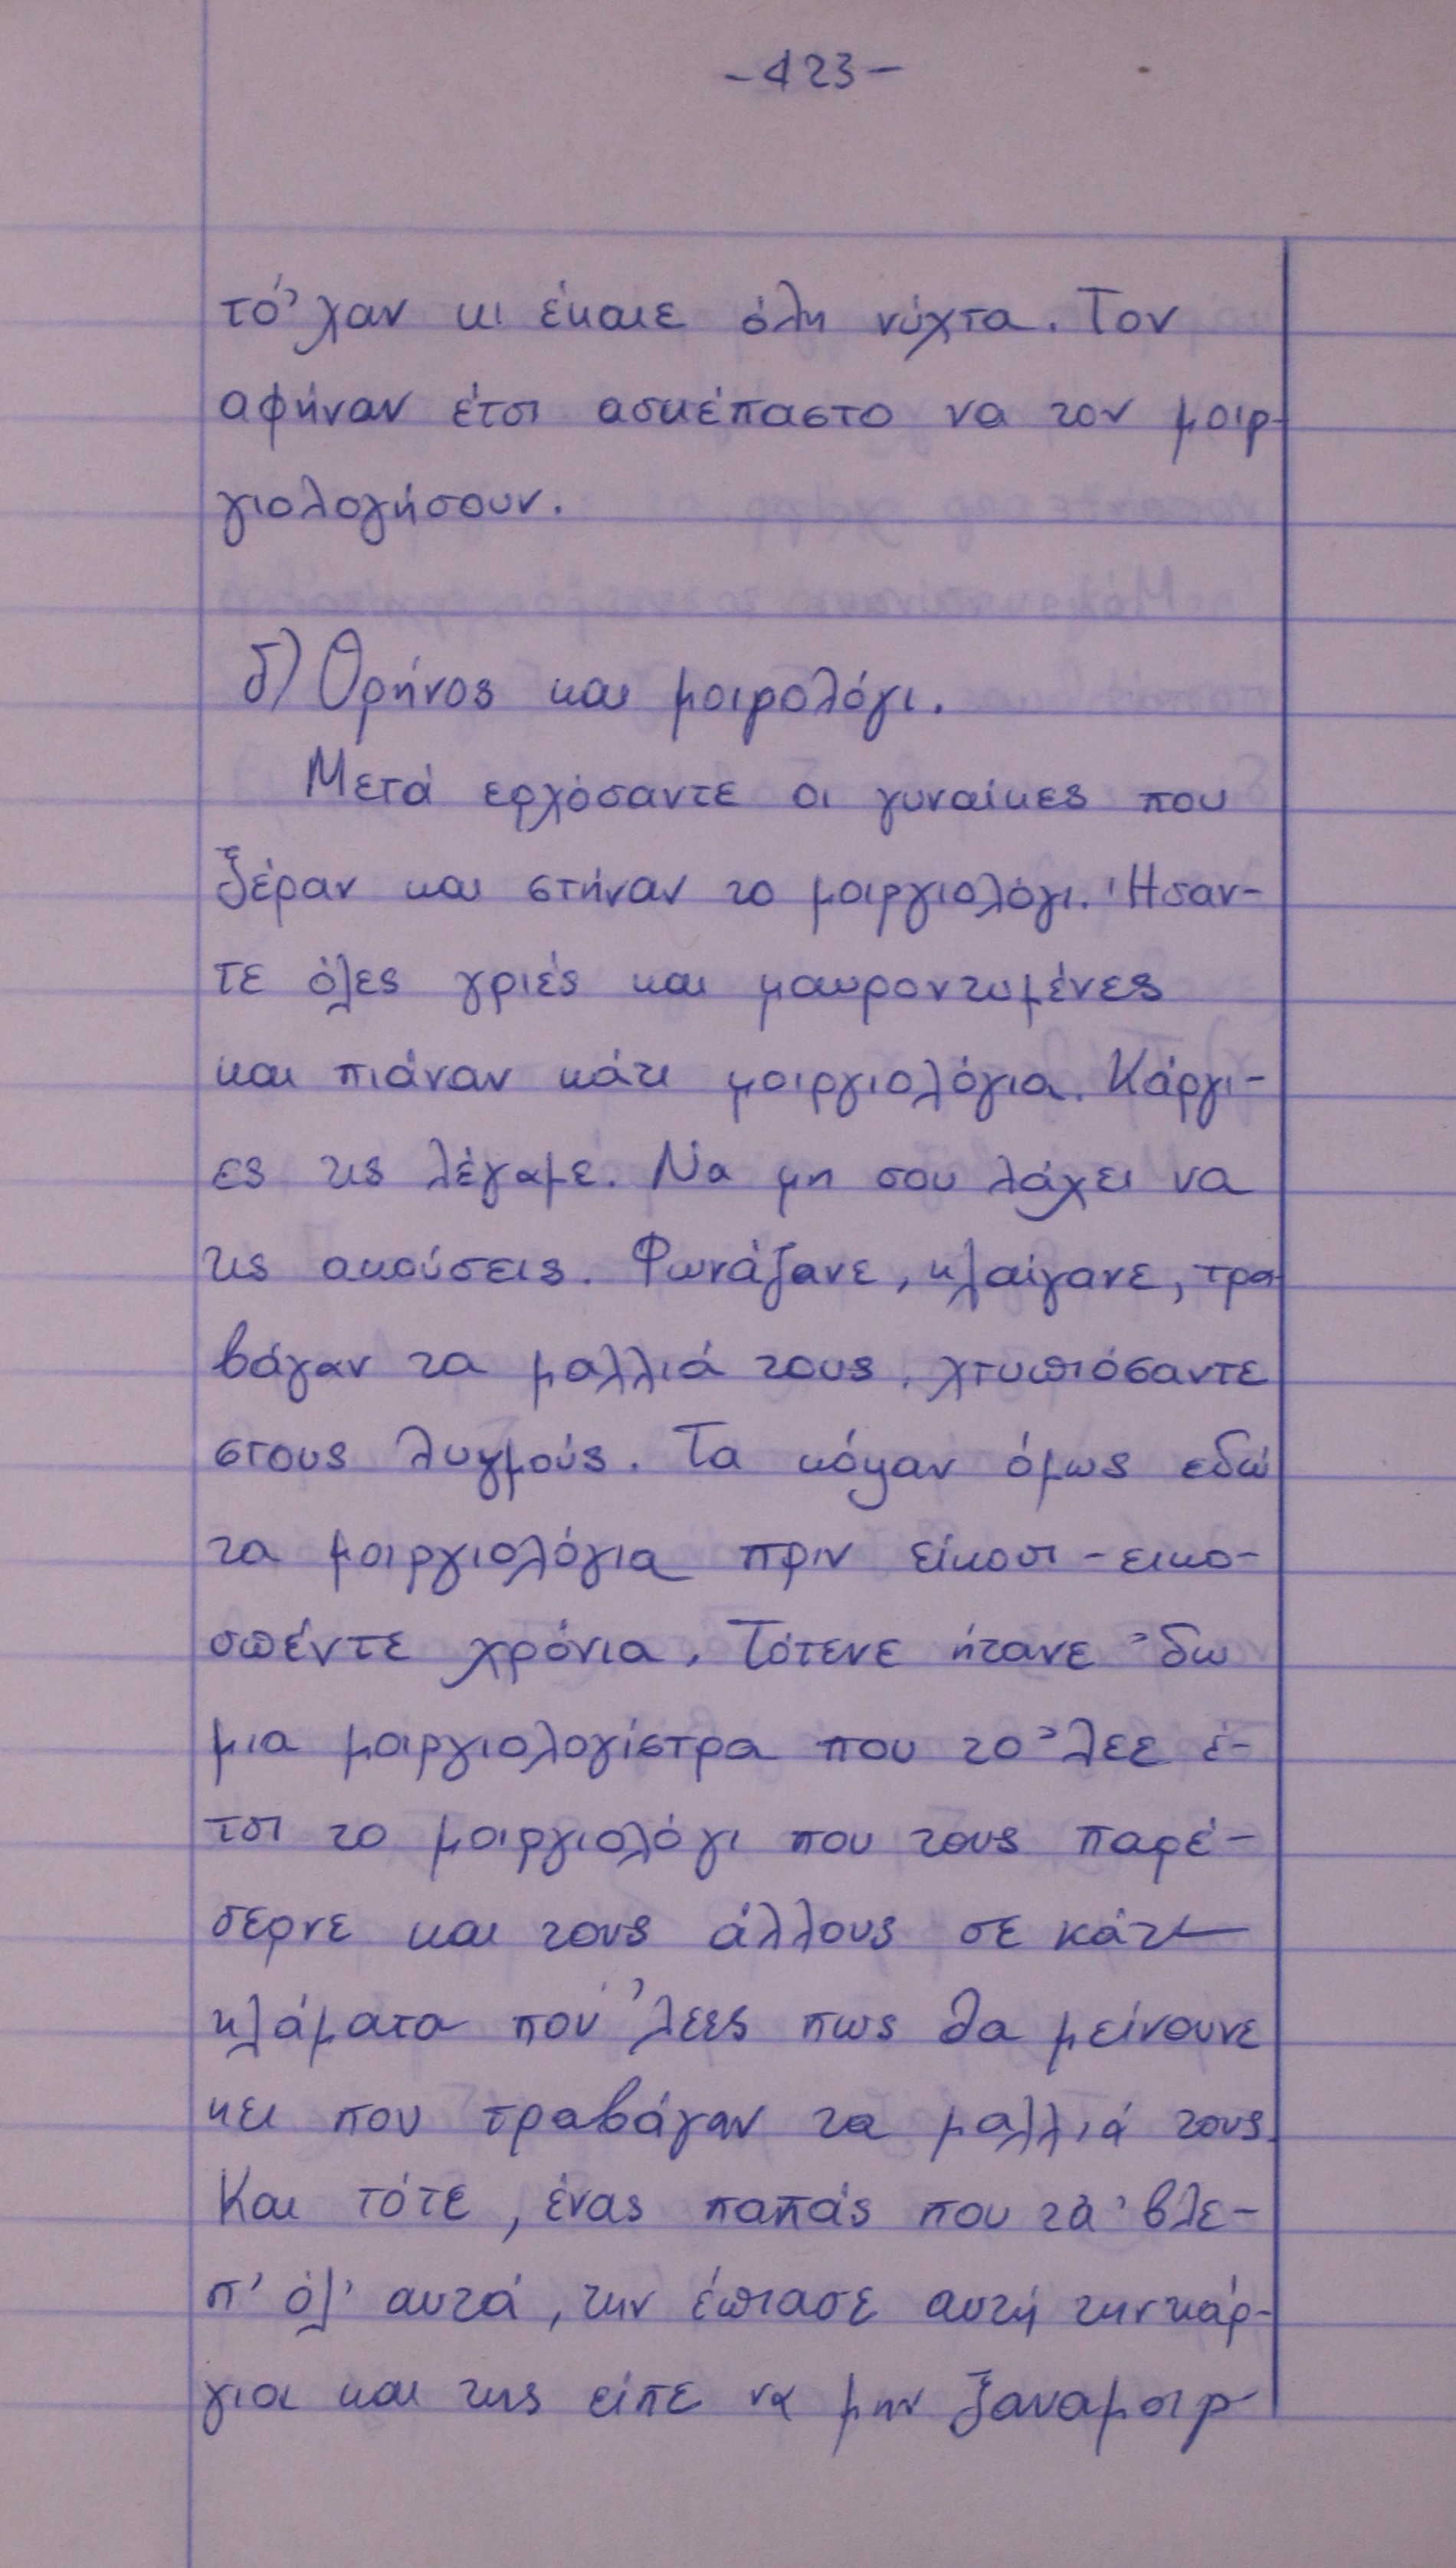 -423-
τό'χαν κι έκαιε όλη νύχτα. Τον
αφήναν έτσι ασκέπαστο να τον μοιρ-
γιολογήσουν.
δ) Θρήνος και μοιρολόγι.
Μετά ερχόσαντε οι γυναίκες που
ξέραν και στήναν το μοιργιολόγι. Ήσαν-
τε όλες γριές και μαυροντυμένες
και πιάναν κάτι μοιργιολόγια. Κάργι-
ες τις λέγαμε. Να μη σου λάχει να
τις ακούσεις. Φωνάζανε, κλαίγανε, τρα-
βάγαν τα μαλλιά τους, χτυπιόσαντε
στους λυγμούς. Τα κόψαν όμως εδώ
τα μοιργιολόγια πριν είκοσι-εικο-
σπέντε χρόνια. Τότενε ήτανε 'δω
μια μοιργιολογίστρα που το 'λεε έ-
τσι το μοιργιολόγι που τους παρέ-
δερνε και τους άλλους σε κάτι
κλάματα που 'λεες πως θα μείνουνε
κει που τραβάγαν τα μαλλιά τους.
Και τότε, ένας παπάς που τά 'βλε-
π' όλ' αυτά, την έπιασε αυτή την κάρ-
για και της είπε να μην ξαναμοιρ-